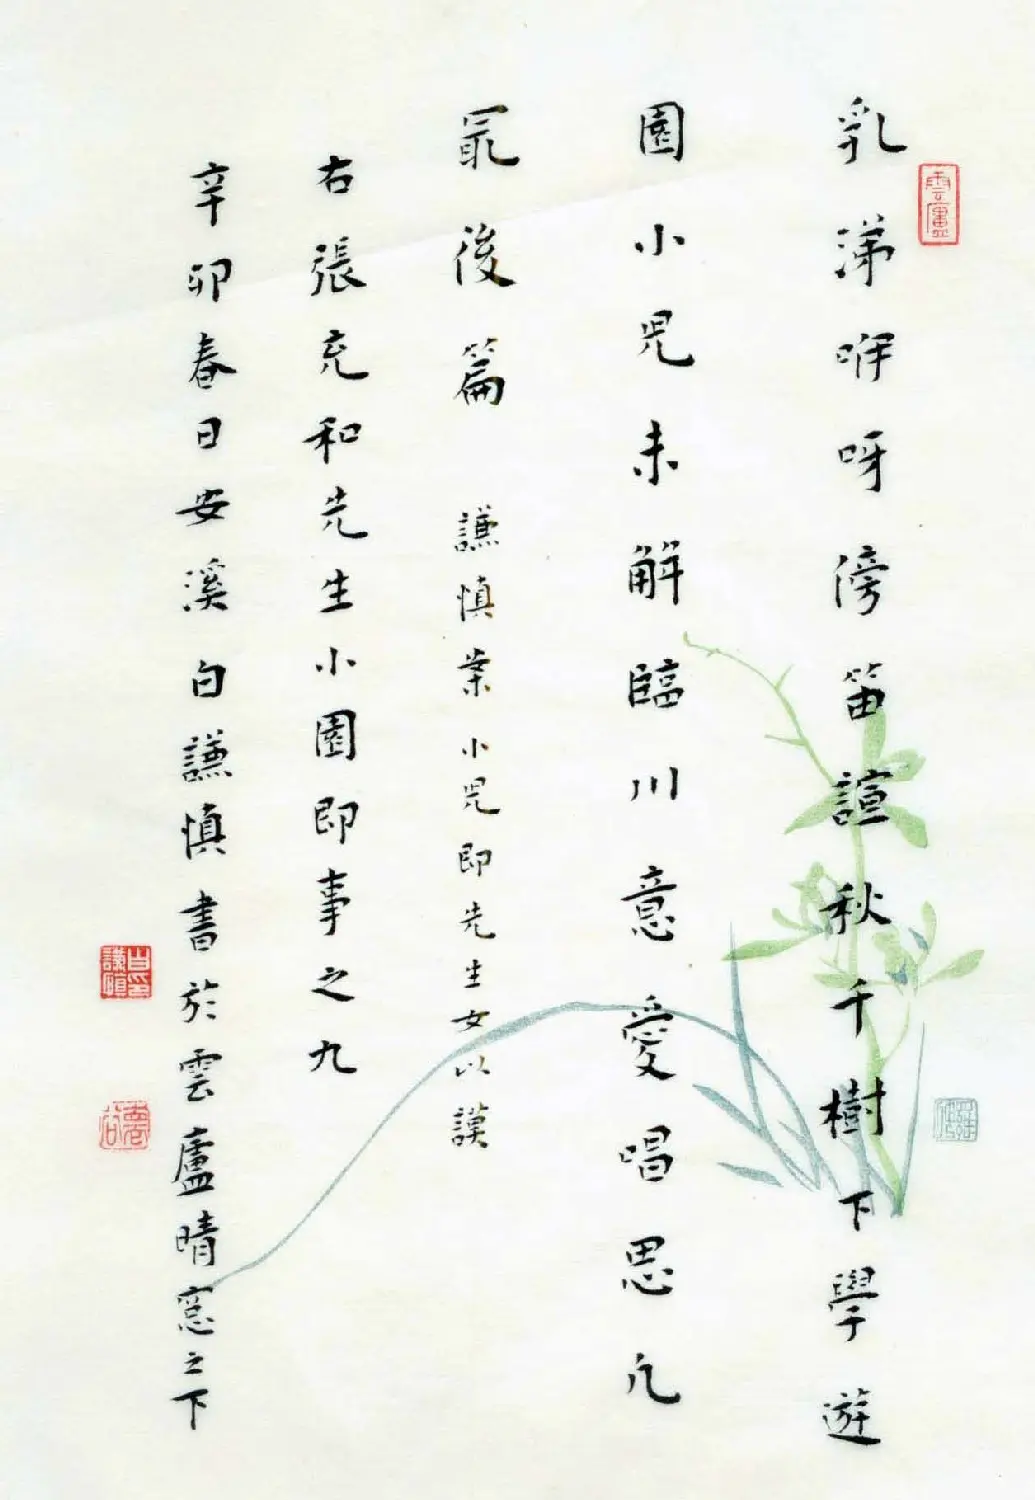 乳涕咿呀傍笛諠秋千樹下學遊
園小児未解臨川意愛唱思凡
冣後篇 謙慎案小児即先生女以謨
右張充和先生小園即事之九
辛卯春日安溪白謙慎書於雲廬晴窓之下
雲廬
白謙慎印